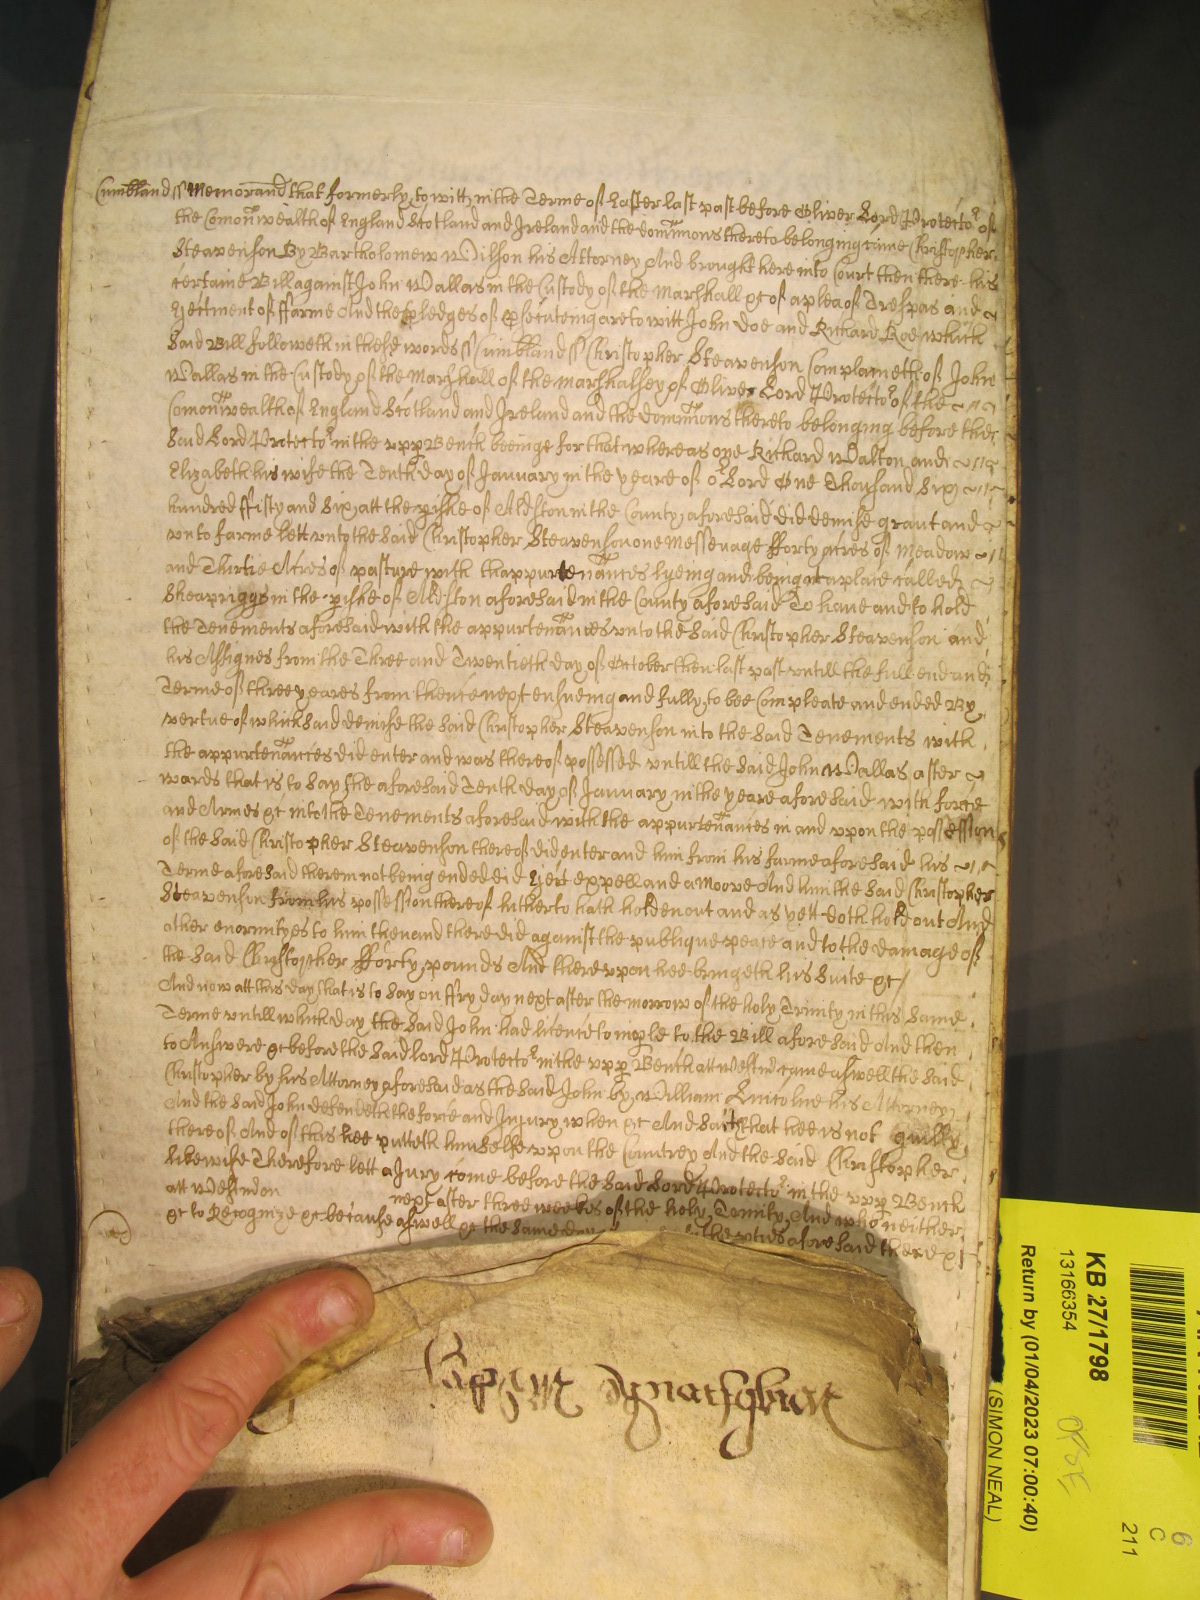 Cumbland ss Memorand that formerly to witt in the Terme of Easter last past before Oliver Lord Protector of
the Comonwealth of England Scotland and Ireland and the dominions thereto belonging came Christopher
Steavenson By Bartholomew Wilson his Attorney And brought here into Court then there his
certaine Bill against John Wallas in the Custody of the Marshall &c of a plea of Trespas and
Ejectment of ffarme And the pledges of psecuteing are to witt John Doe and Richard Roe which
Said Bill followeth in these words ss Cumbland ss Christopher Steavenson Complaineth of John
Wallas in the Custody of the Marshall of the Marshalsey of Oliver Lord Protector of the
Comonwealth of England Scotland and Ireland and the dominions thereto belonging before the
Said Lord Protector in the upp Bench beeinge for that whereas one Richard Walton and
Elizabeth his wife the Tenth day of January in the yeare of or Lord One Thousand Six
hundred ffifty and Six att the pishe of Aldston in the County aforesaid did demise grant and
unto farme lett unto the said Christopher Steavenson one Messuage fforty acres of Meadow
and Thirtie Acres of pasture with thappurtenances lyeing and being att a place called
Sheapriggs in the pishe of Aldston aforesaid in the County aforesaid To have and to hold
the Tenements aforesaid with the appurtenances unto the said Christopher Steavenson and
his Assignes from the Three and Twentieth day of October then last past untill the full end and
Terme of three yeares from thence next ensueing and fully to bee Compleate and ended By
vertue of which Said demise the Said Christopher Steavenson into the Said Tenements with
the appurtenances did enter and was thereof possessed untill the Said John Wallas after
wards that is to say the aforesaid Tenth day of January in the yeare aforesaid with force
and Armes &c into the Tenements aforesaid with the appurtenances in and upon the possession
of the Said Christopher Steavenson thereof did enter and him from his farme aforesaid his
Terme aforesaid therein not being ended did Eject expell and amoove And him the said Christopher
Steavenson from his possession thereof hitherto hath holden out and as yett doth hold out And
other enormityes to him then and there did against the publique peace and to the damage of
the said Christopher fforty pounds And thereupon hee bringeth his Suite &c
And now att this day that is to say on ffryday next after the morrow of the holy Trinity in this same
Terme untill which day the said John had licence to imple to the Bill aforesaid And then
to Answere &c before the said lord Protector in the upp Bench att Westm came aswell the said
Christopher by his Attorney aforesaid as the said John by William his Attorney
And the said John defendeth the force and Injury when &c And Saith that hee is not guilty
thereof And of this hee putteth himselfe upon the Countrey And the said Christopher
likewise Therefore lett a Jury come before the said Lord Protector in the upp Bench
att Westm on next after three weekes of the holy Trinity And who neither
&c to Recognize &c because aswell &c the same day the aforesaid there
KB 27/1798
13166354
Return by (01/04/2023 07:00:40)
(SIMON NEAL)
6
C
211